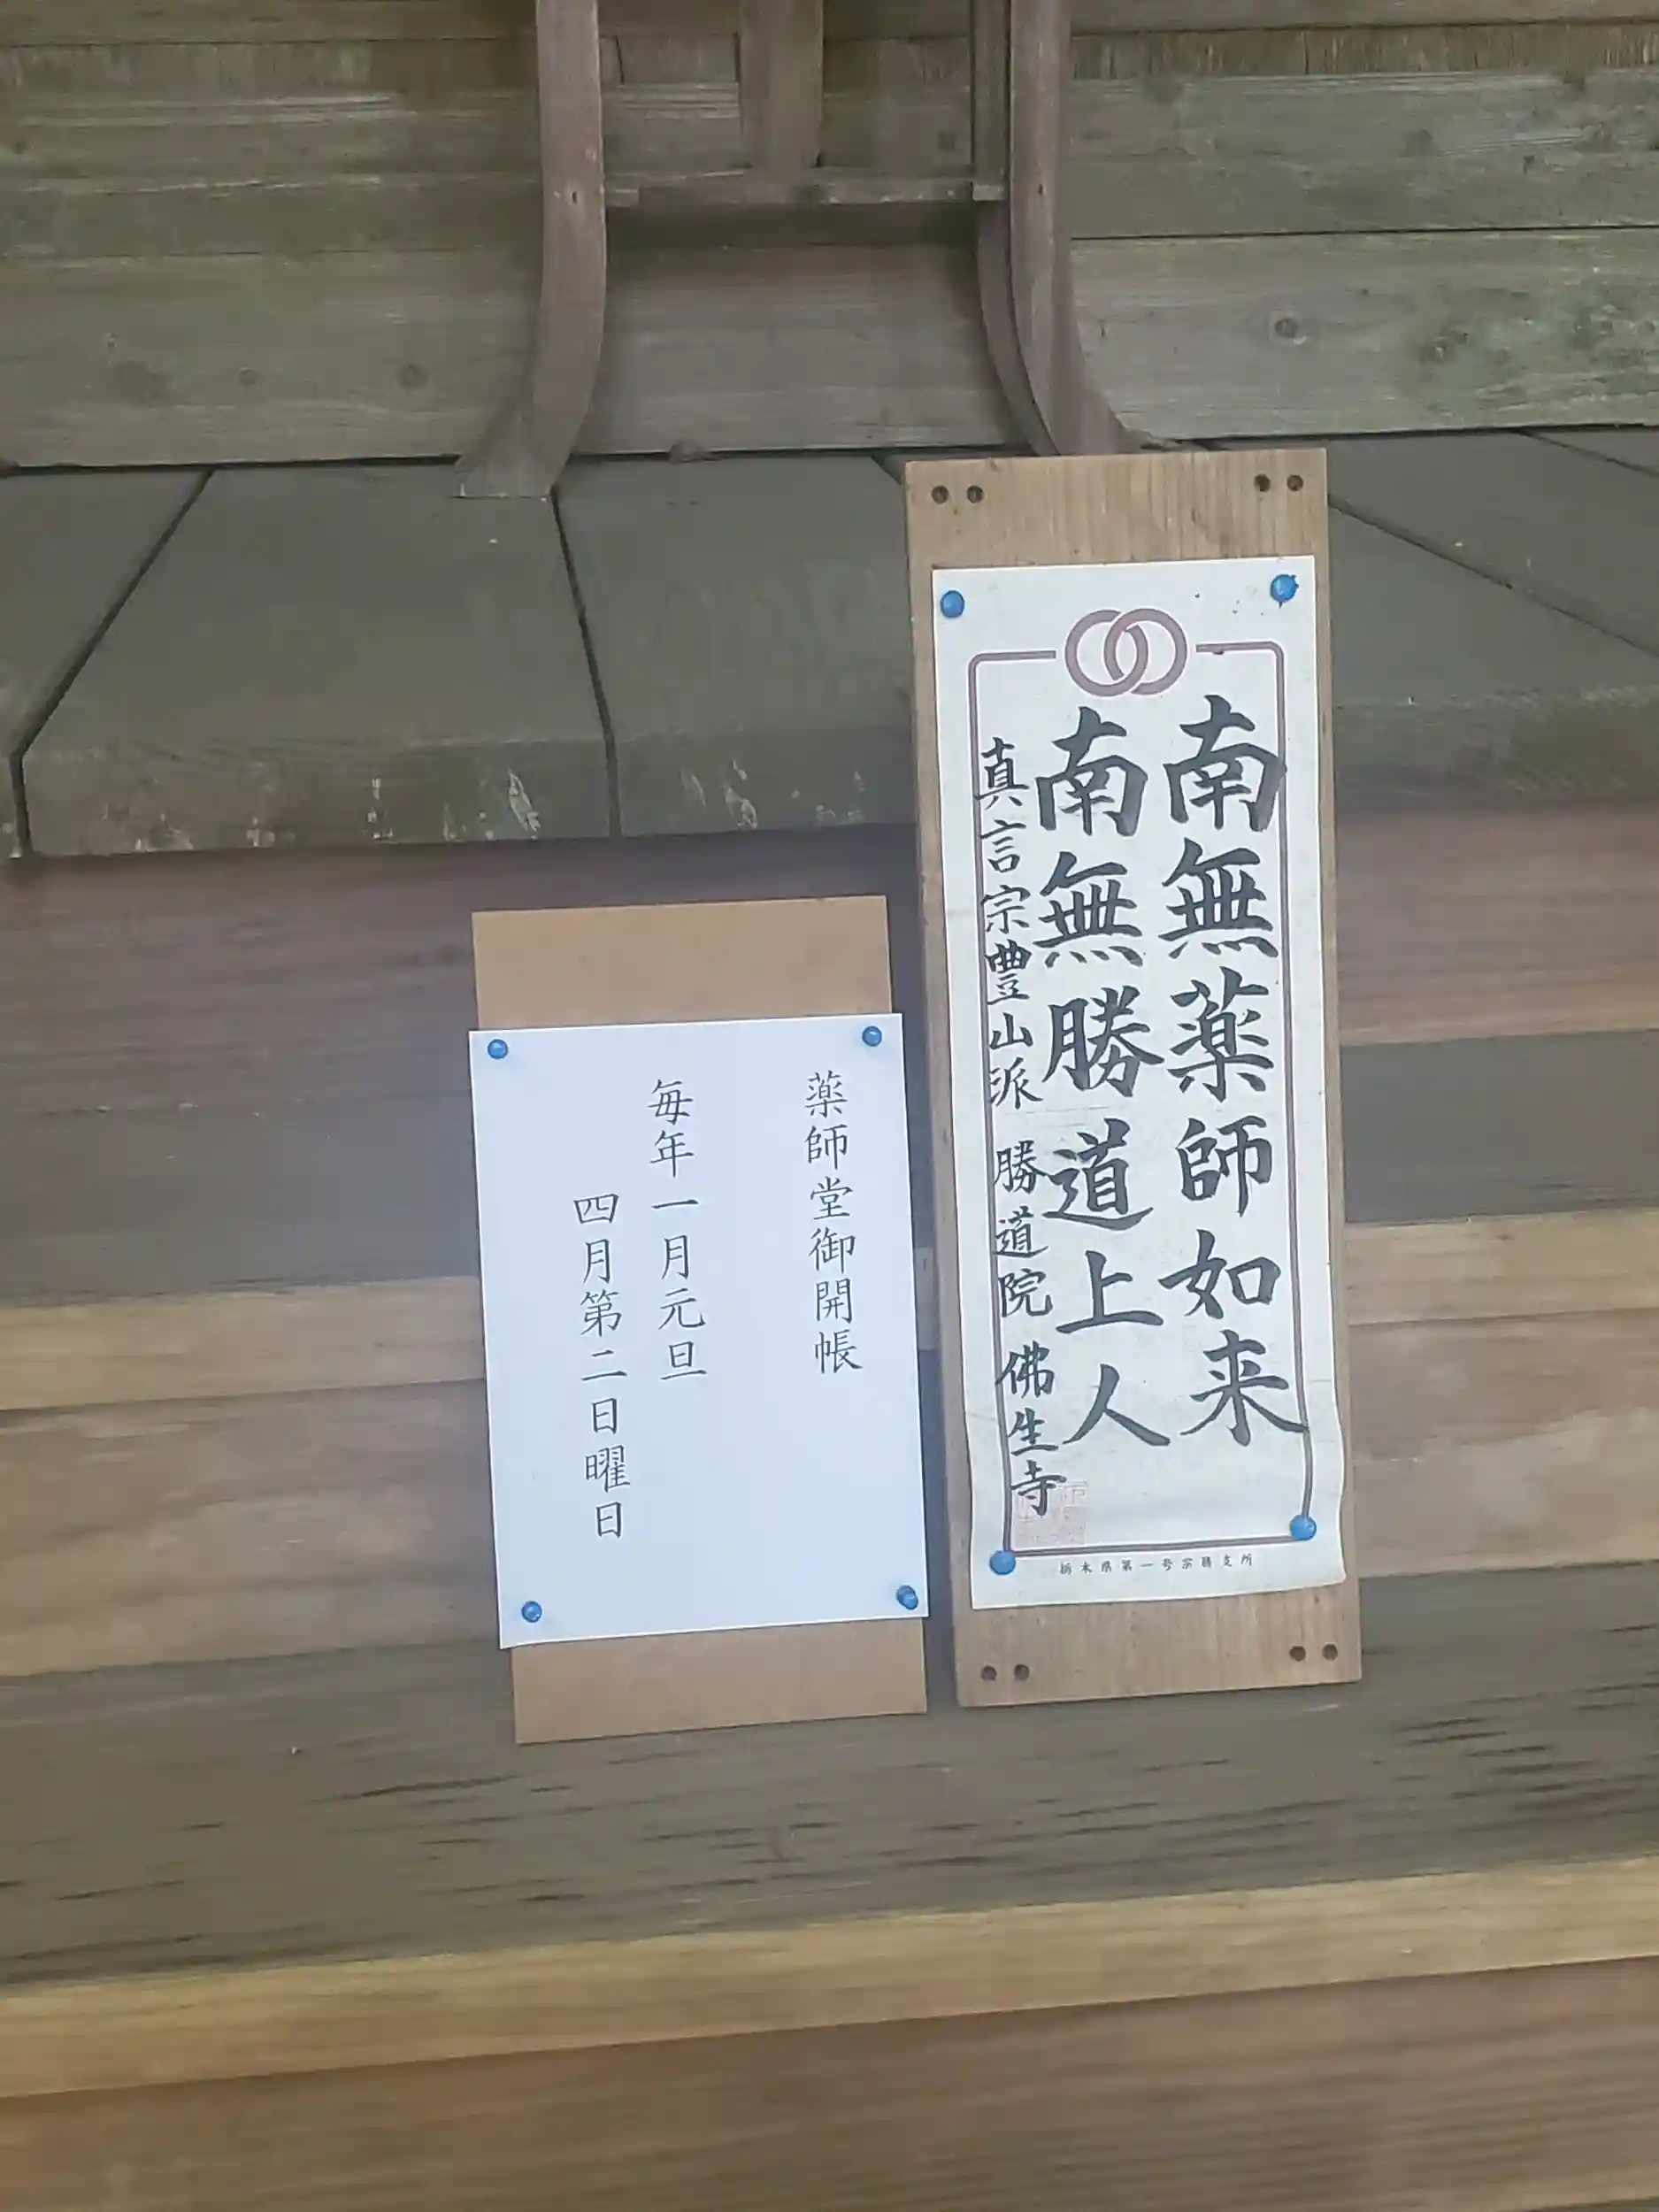 南無薬師如来
南無勝道上人
真言宗豊山派 勝道院 佛生寺
栃木県第一号宗務支所
薬師堂御開帳
毎年一月元旦
四月第二日曜日